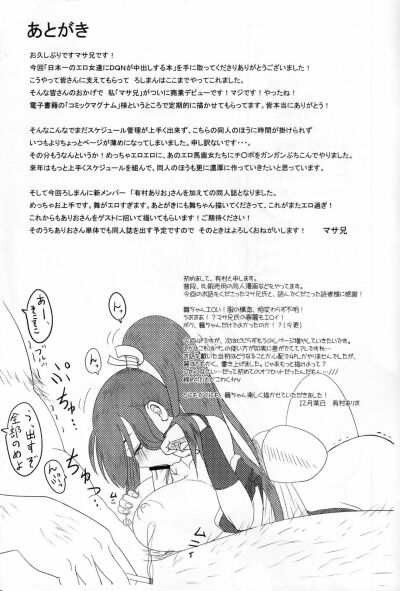 あとがき
お久しぶりですマサ兄です！
今回「日本一のエロ女達にDQNが中出しする本」を手に取ってくださりありがとうございました！
こうやって皆さんに支えてもらって ろしまんはここまでやってこれました。
そんな皆さんのおかげで 私「マサ兄」がついに商業デビューです！マジです！やったね！
電子書籍の「コミックマグナム」様というところで定期的に描かせてもらってます。皆本当にありがとう！
そんなこんなでまだスケジュール管理が上手く出来ず、こちらの同人のほうに時間が掛けられず
いつもよりちょっとページが薄めになってしまいました。申し訳ないです…。
その分もうなんというか！めっちゃエロエロに、あのエロ馬鹿女たちにチ○ポをガンガンぶちこんでやりました。
来年はもっと上手くスケジュールを組んで、同人のほうも更に濃厚に作っていきたいと思っています。
そして今回ろしまんに新メンバー 「有村ありお」さんを加えての同人誌となりました。
めっちゃお上手です。舞がエロすぎます。あとがきにも舞ちゃん描いてくださって、これがまたエロ過ぎ！
これからもありおさんをゲストに招いて描いてもらいます！ご期待ください！
そのうちありおさん単体でも同人誌を出す予定ですので そのときはよろしくおねがいします！ マサ兄
初めまして、有村と申します。
普段、DL販売用の同人漫画などもやってます。
今回のお話をくださったマサ兄氏と、読んでくださった読者様に感謝！
舞ちゃんエロい！服の構造、相変わらず不明！
うおまぁ！？マサ兄氏の春麗もエロイ！
ボク、舞ちゃんだけでよかったのか！？（今更）
舞ちゃん楽しく描かせていただきました！
12月某日 有村ありお
あー、
んっ
んっ
パンッ
ちゅっ
ちゅっ
うっ、出すぞ
全部のめよ